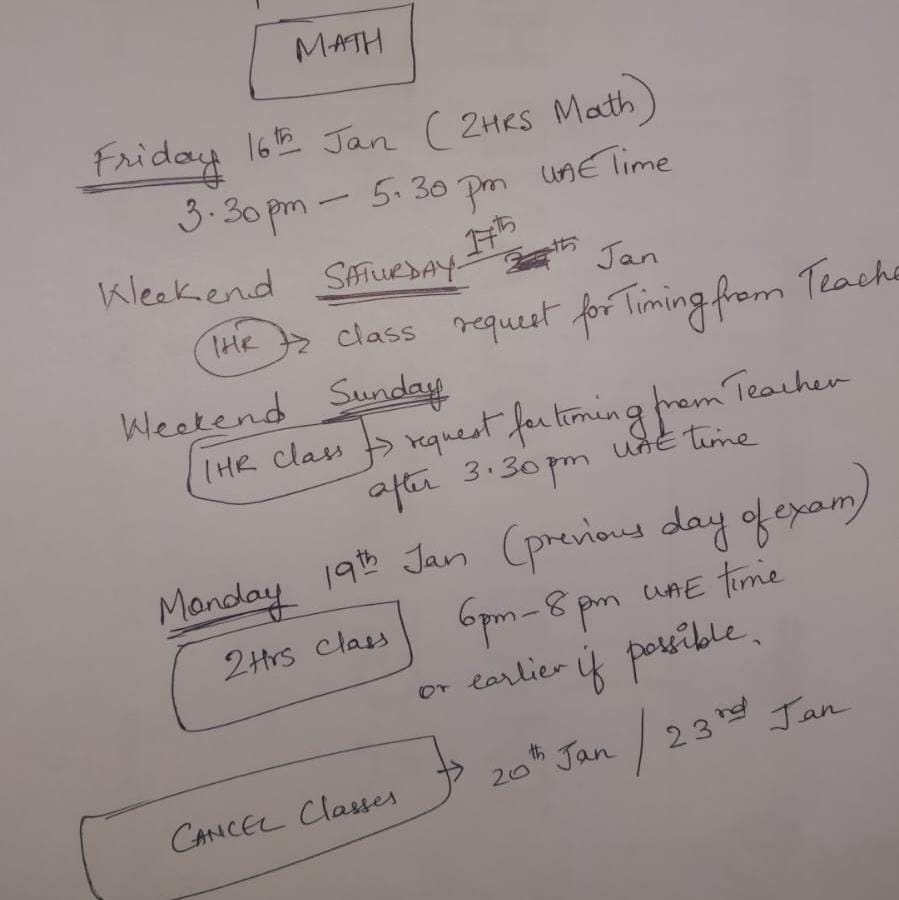 MATH
Friday 16th Jan (2HRS Math)
3.30pm - 5.30 pm UAE Time
Weekend SATURDAY 17th Jan
1HR → class request for Timing from Teache
Weekend Sunday
1HR class → request for timing from Teacher
after 3.30pm UAE time
Monday 19th Jan (previous day of exam)
2Hrs class 6pm - 8pm UAE time
or earlier if possible.
CANCEL Classes → 20th Jan / 23rd Jan